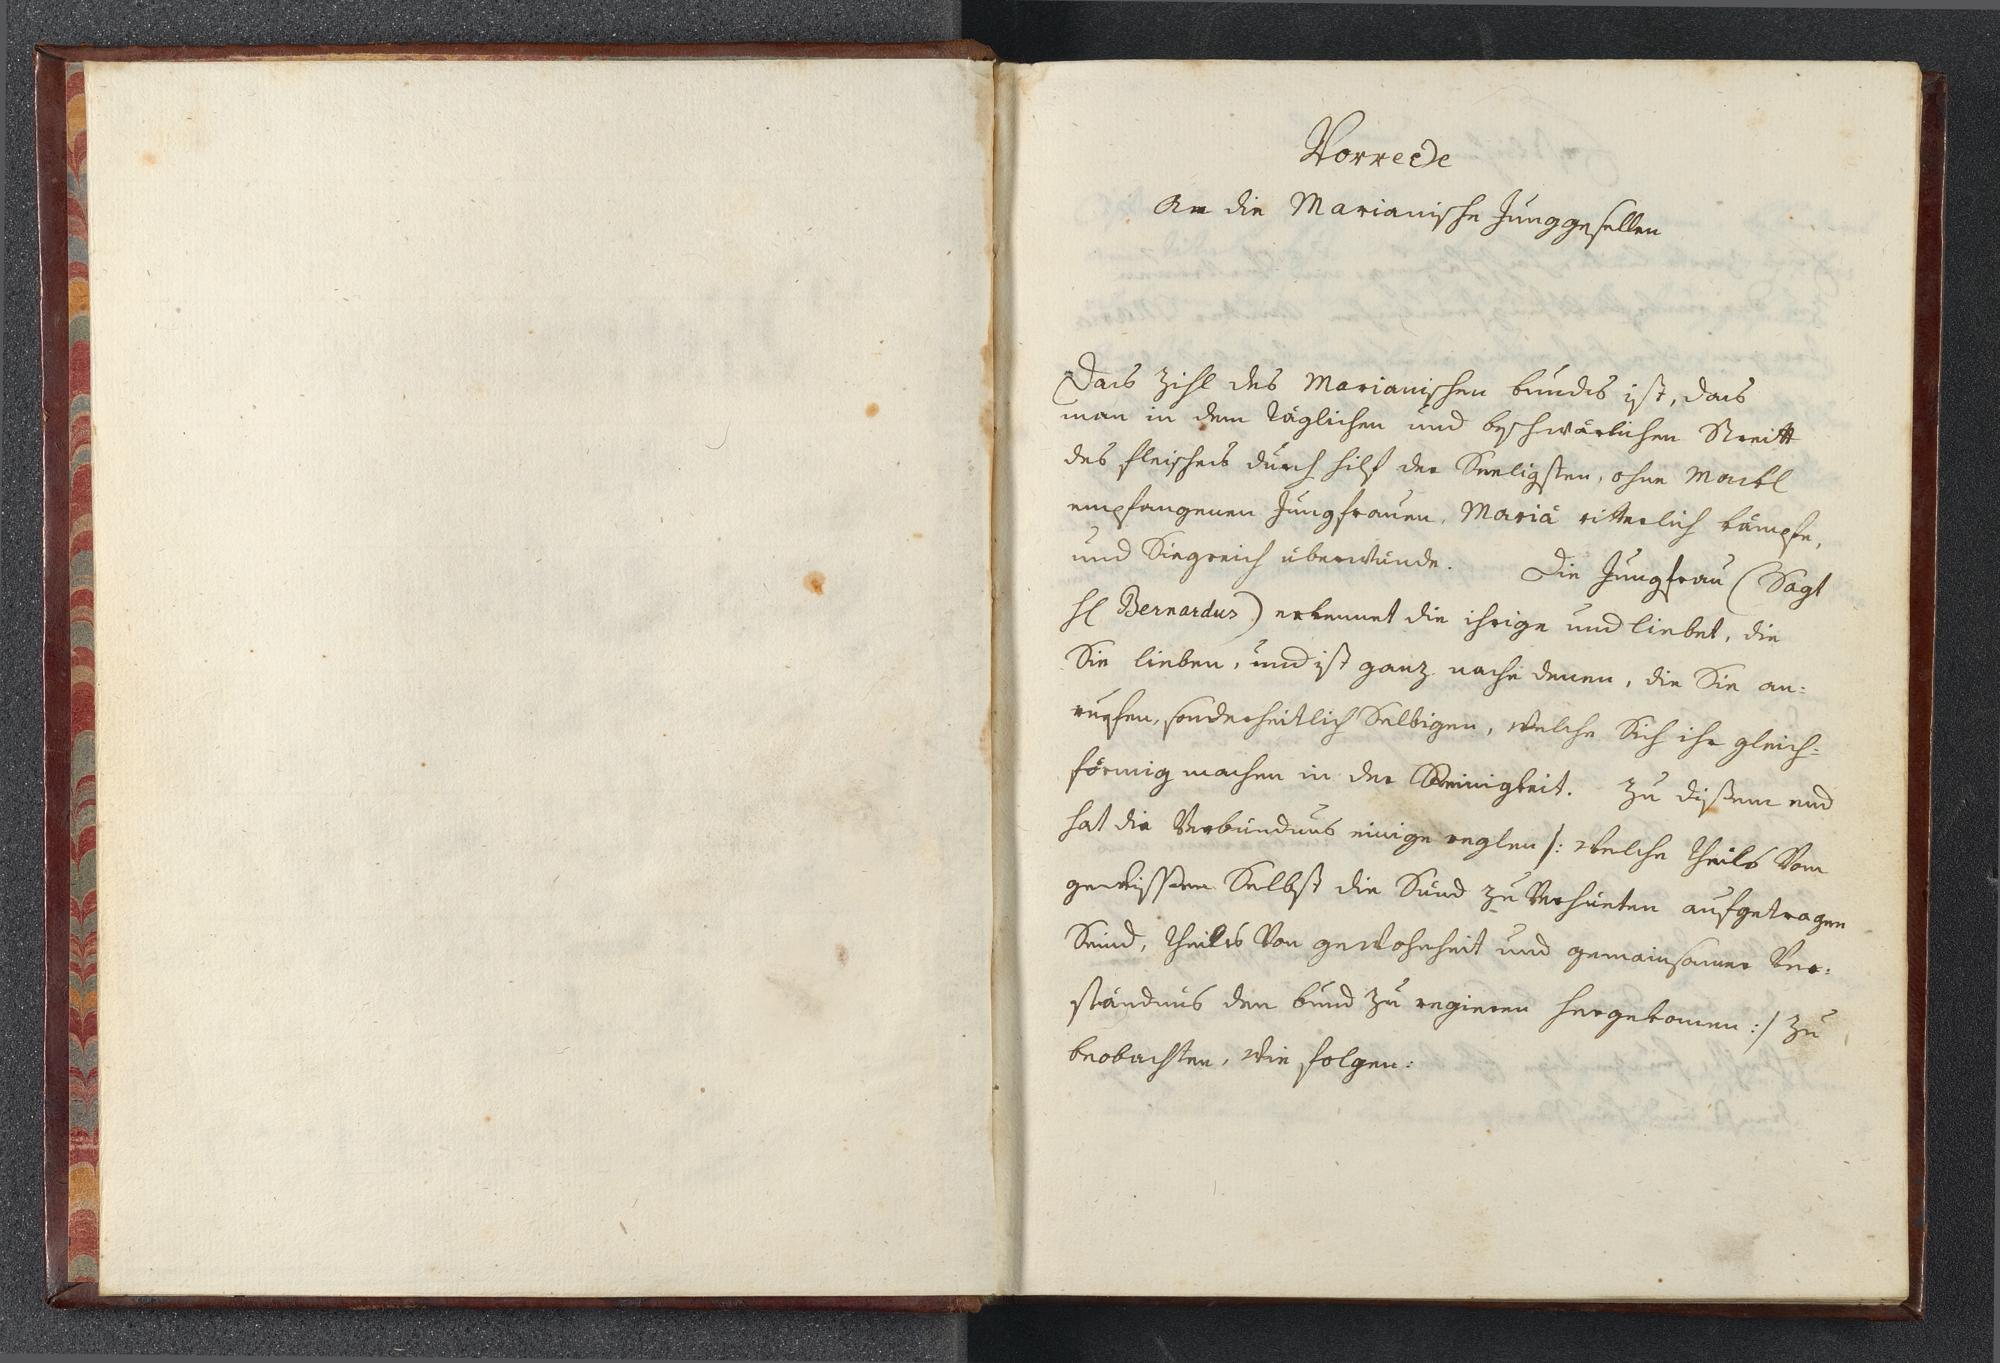 Vorrede
An die Marianische Junggesellen
Das Zihl des Marianischen bunds ist, das
man in dem täglichen und beschwärlichen Streitt
des fleisches durch hilf der Seeligsten, ohne Mackl
empfangenen Jungfrauen, Mariä ritterlich kämpfe,
und Siegreich überwünde. Die Jungfrau (Sagt
hl Bernardus) erkennet die ihrige und liebet, die
Sie lieben, und ist ganz nache denen, die Sie an:
ruefen, sonderheitlich Selbigen, welche Sich ihr gleich:
förmig machen in der Reinigkeit. Zu dißem end
hat die Verbündnus einige reglen /: welche theils Vom
gewissen Selbst die Sünd zu Verhüeten aufgetragen
Seind, theils Von gewohnheit und gemainsamer Ver:
ständnus den bund zu regieren hergekomen :/ zu
beobachten, wie folgen: